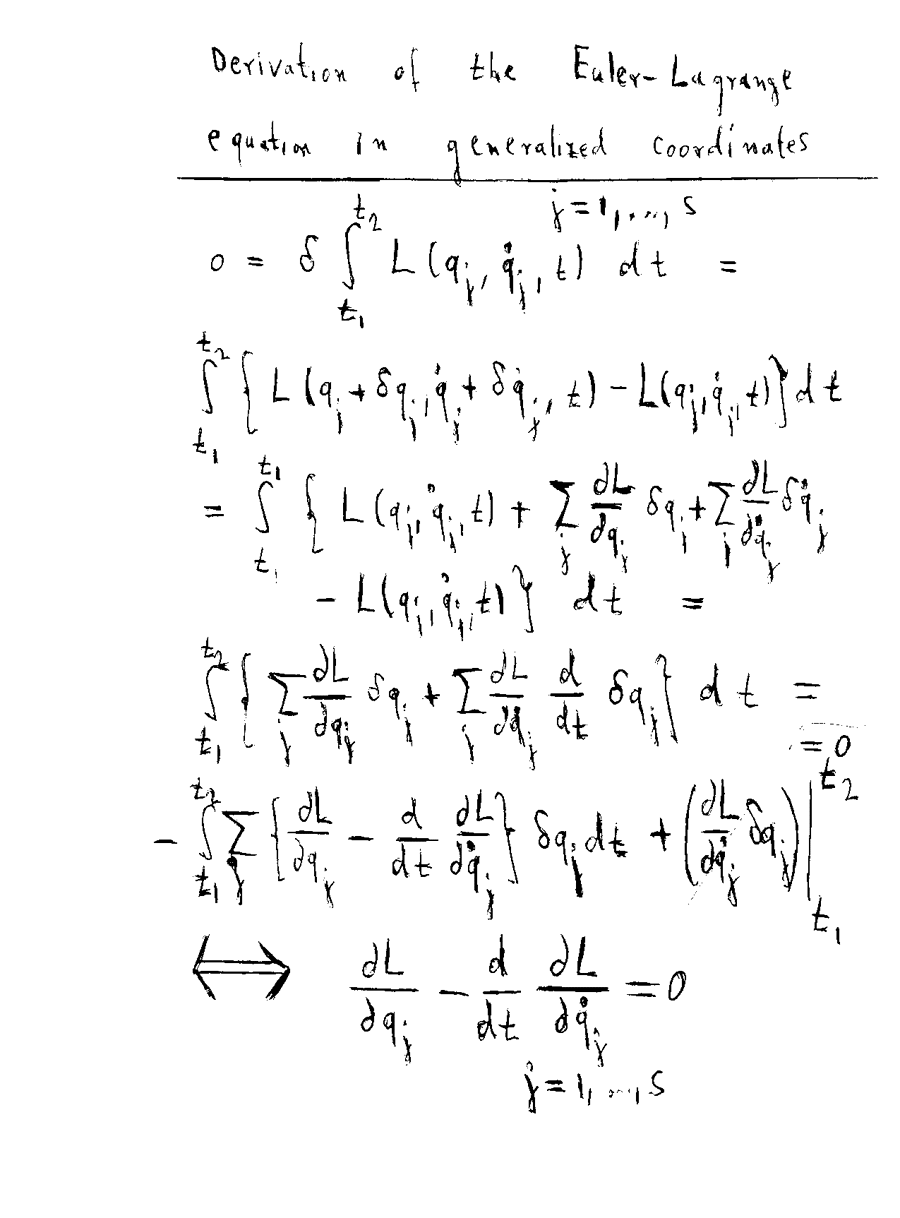 Derivation of the Euler-Lagrange
equation in generalized coordinates
j = 1, ..., s
0 = δ ∫_{t₁}^{t₂} L(q_j, q̇_j, t) dt =
∫_{t₁}^{t₂} { L(q_j + δq_j, q̇_j + δq̇_j, t) − L(q_j, q̇_j, t) } dt
= ∫_{t₁}^{t₁} { L(q_j, q̇_j, t) + Σ_j ∂L/∂q_j δq_j + Σ_j ∂L/∂q̇_j δq̇_j
− L(q_j, q̇_j, t) } dt =
∫_{t₁}^{t₂} { Σ_j ∂L/∂q_j δq_j + Σ_j ∂L/∂q̇_j d/dt δq_j } dt =
= 0
− ∫_{t₁}^{t₂} Σ_j { ∂L/∂q_j − d/dt ∂L/∂q̇_j } δq_j dt + (∂L/∂q̇_j δq_j) |_{t₁}^{t₂}
⟺ ∂L/∂q_j − d/dt ∂L/∂q̇_j = 0
j = 1, ..., s